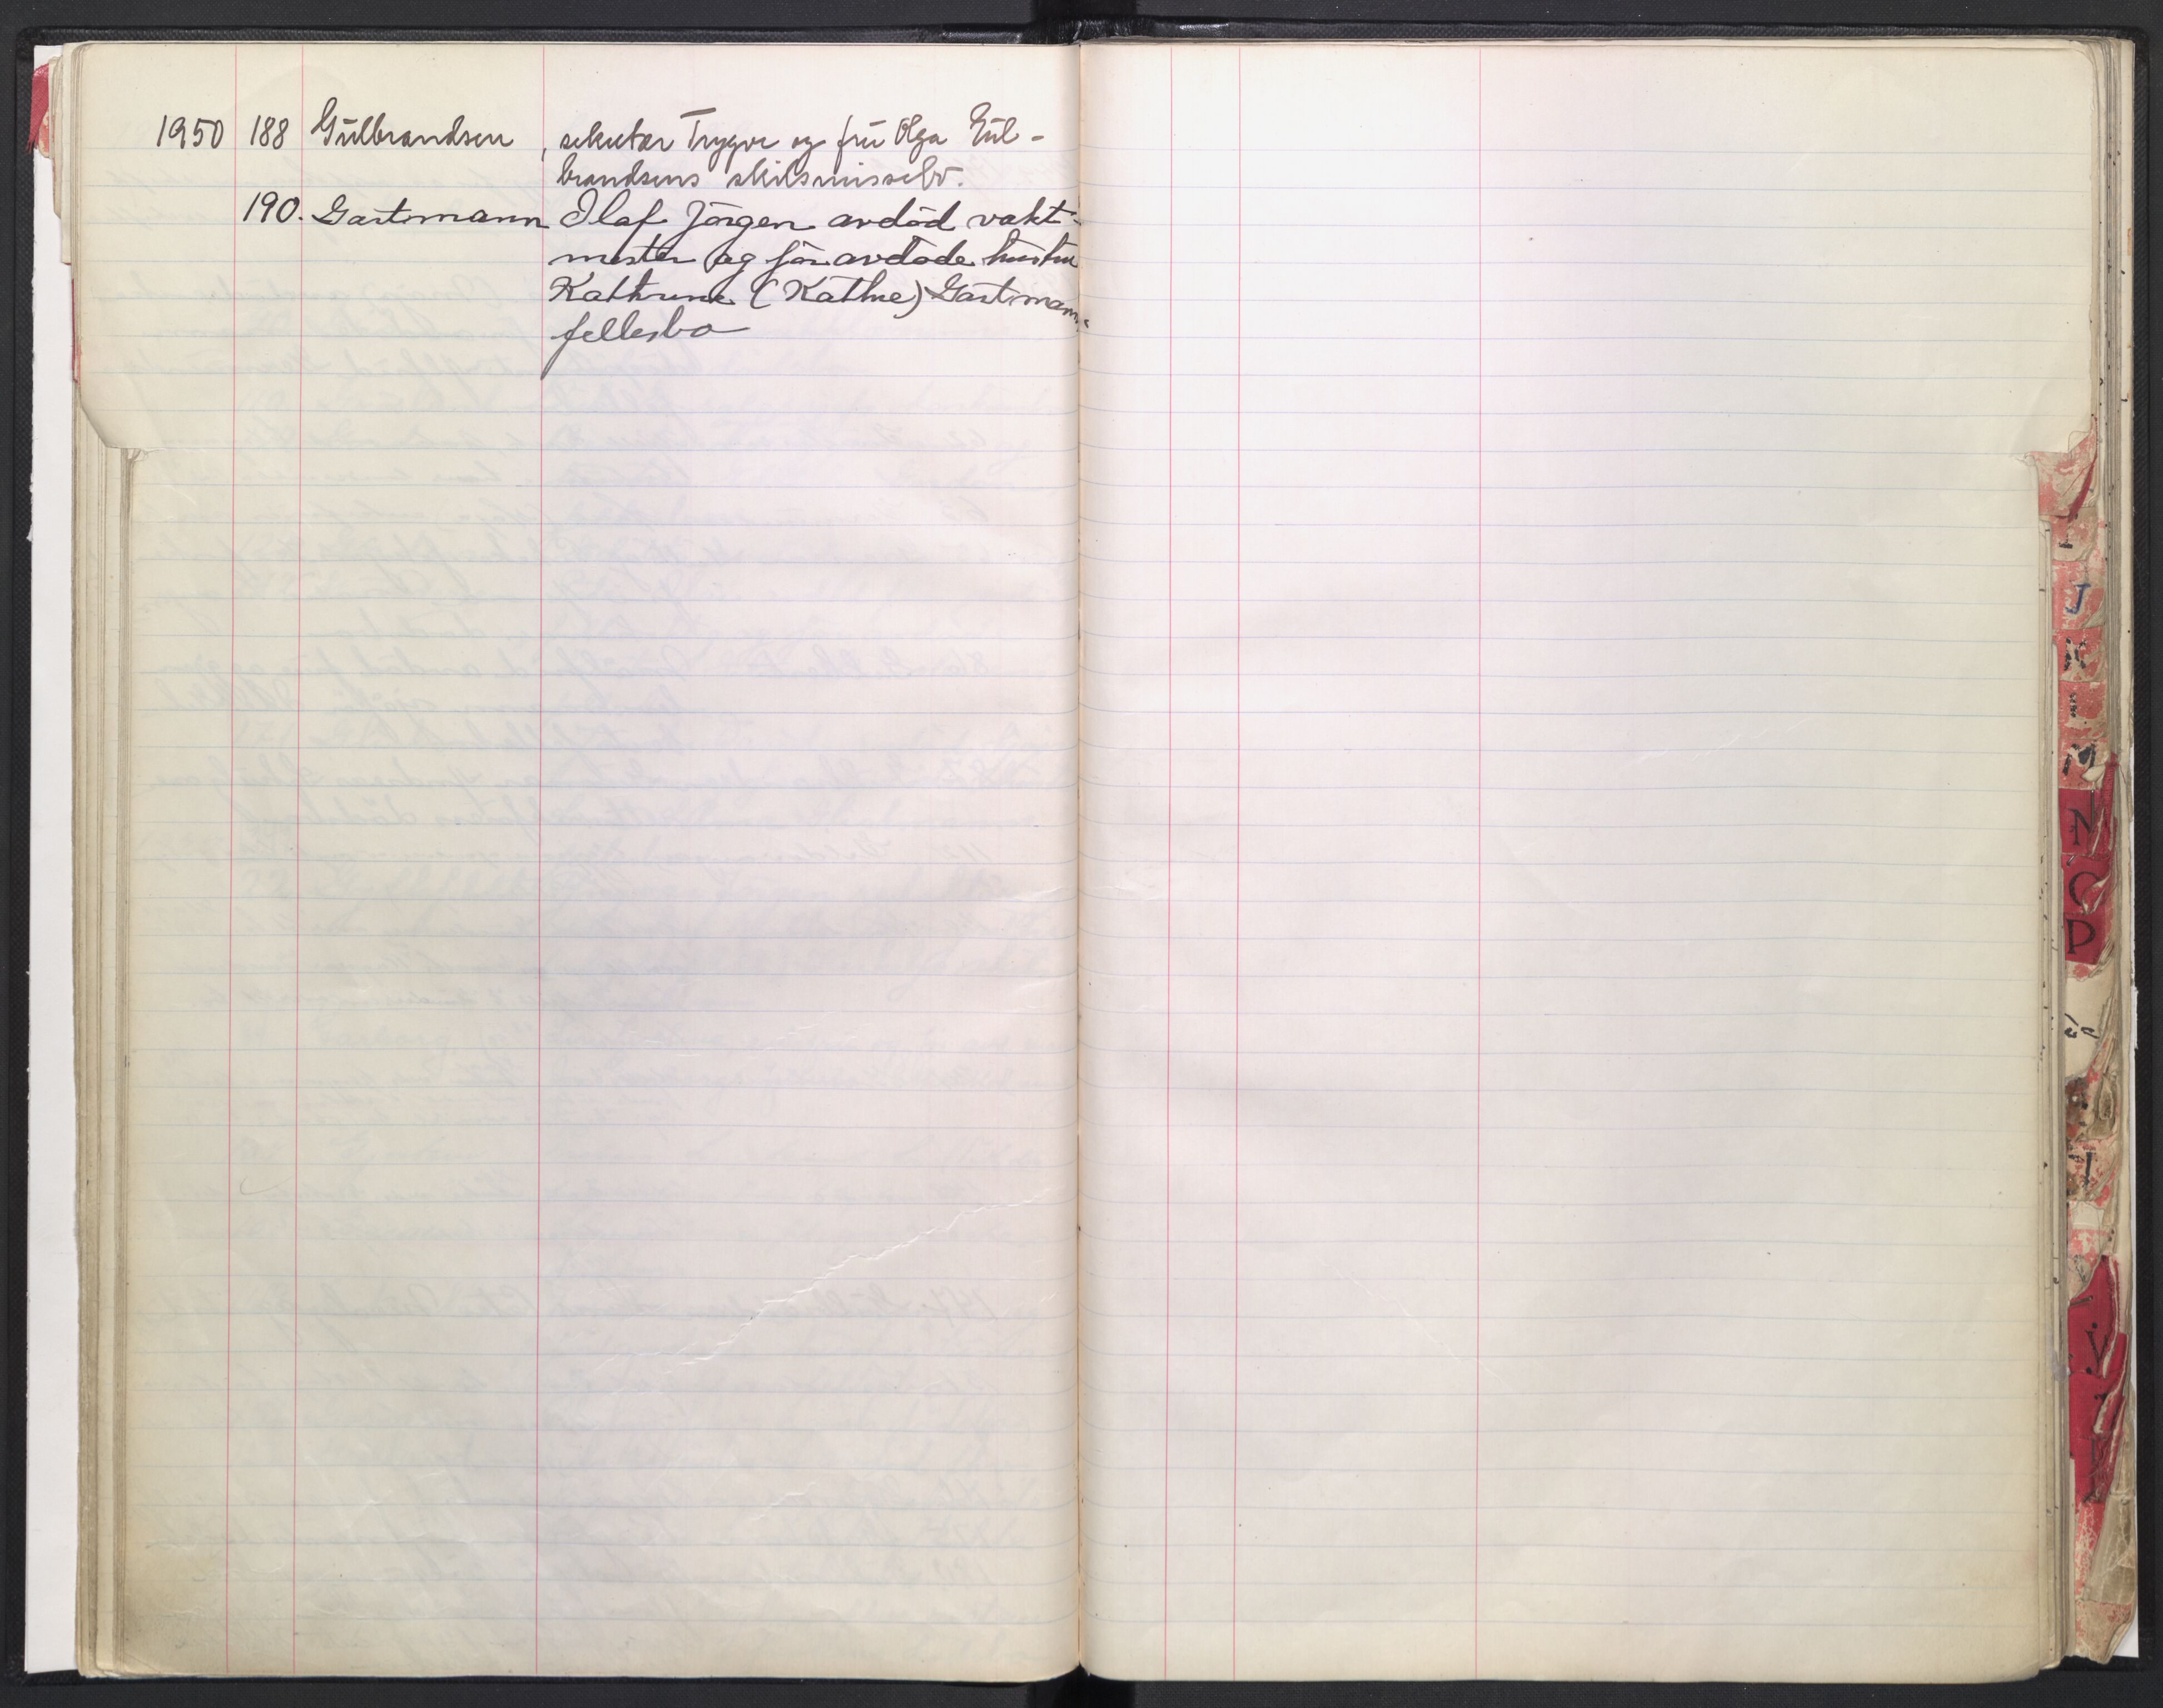 1950 188 Gulbrandsen, sekretær Trygve og fru Olga Gul-
brandsens skilsmissebo.
190. Gartmann Olaf Jørgen avdød vakt-
mester og før avdøde hustru
Kathrine (Kathe) Gartmanns
fellesbo
J
K
L
M
N
O
P